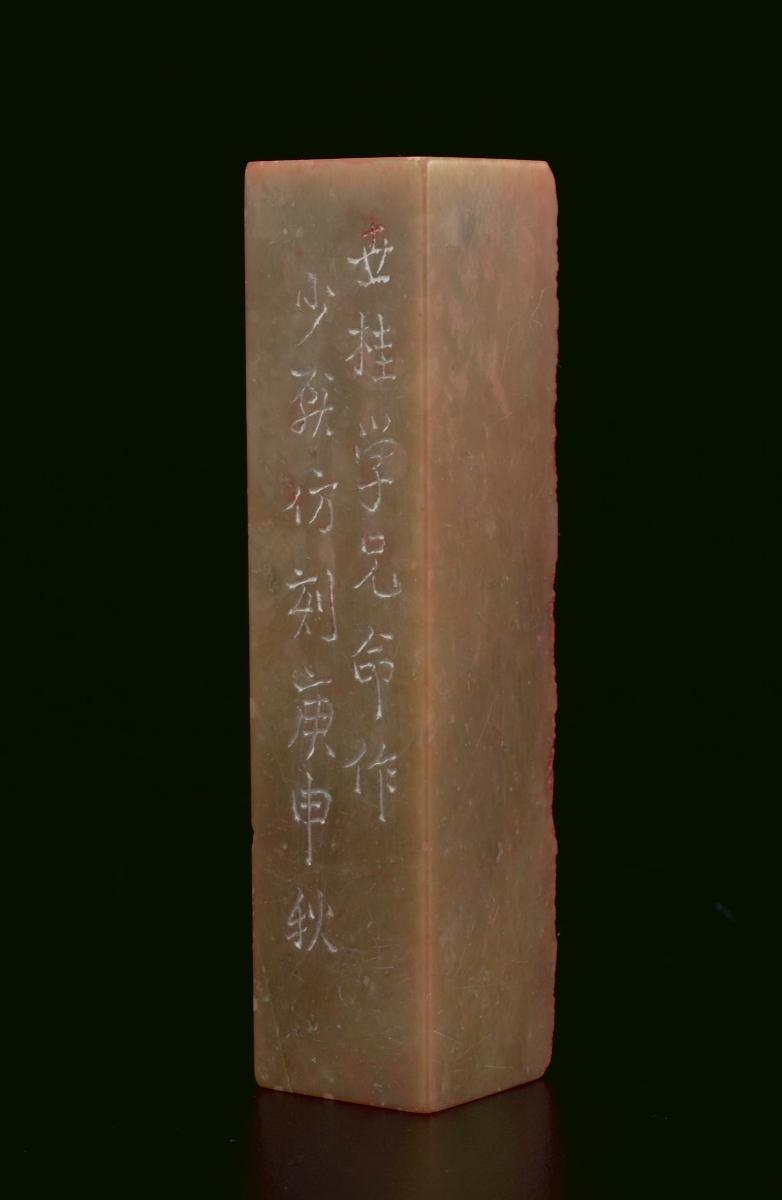 世桂学兄命作
少仿刻庚申秋